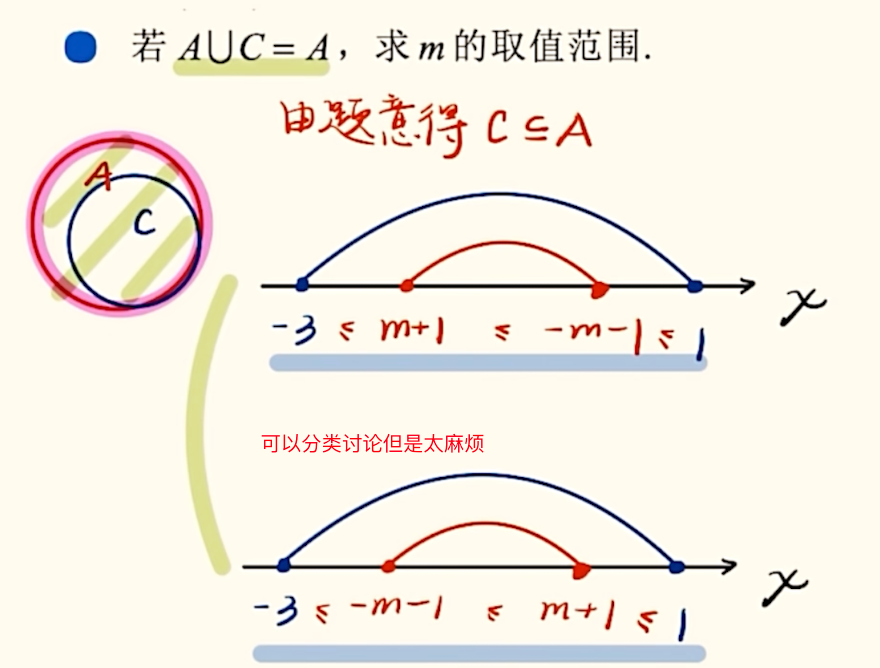 若 A∪C = A，求 m 的取值范围.
由题意得 C ⊆ A
A
C
x
-3 ≤ m+1 ≤ -m-1 ≤ 1
可以分类讨论但是太麻烦
x
-3 ≤ -m-1 ≤ m+1 ≤ 1